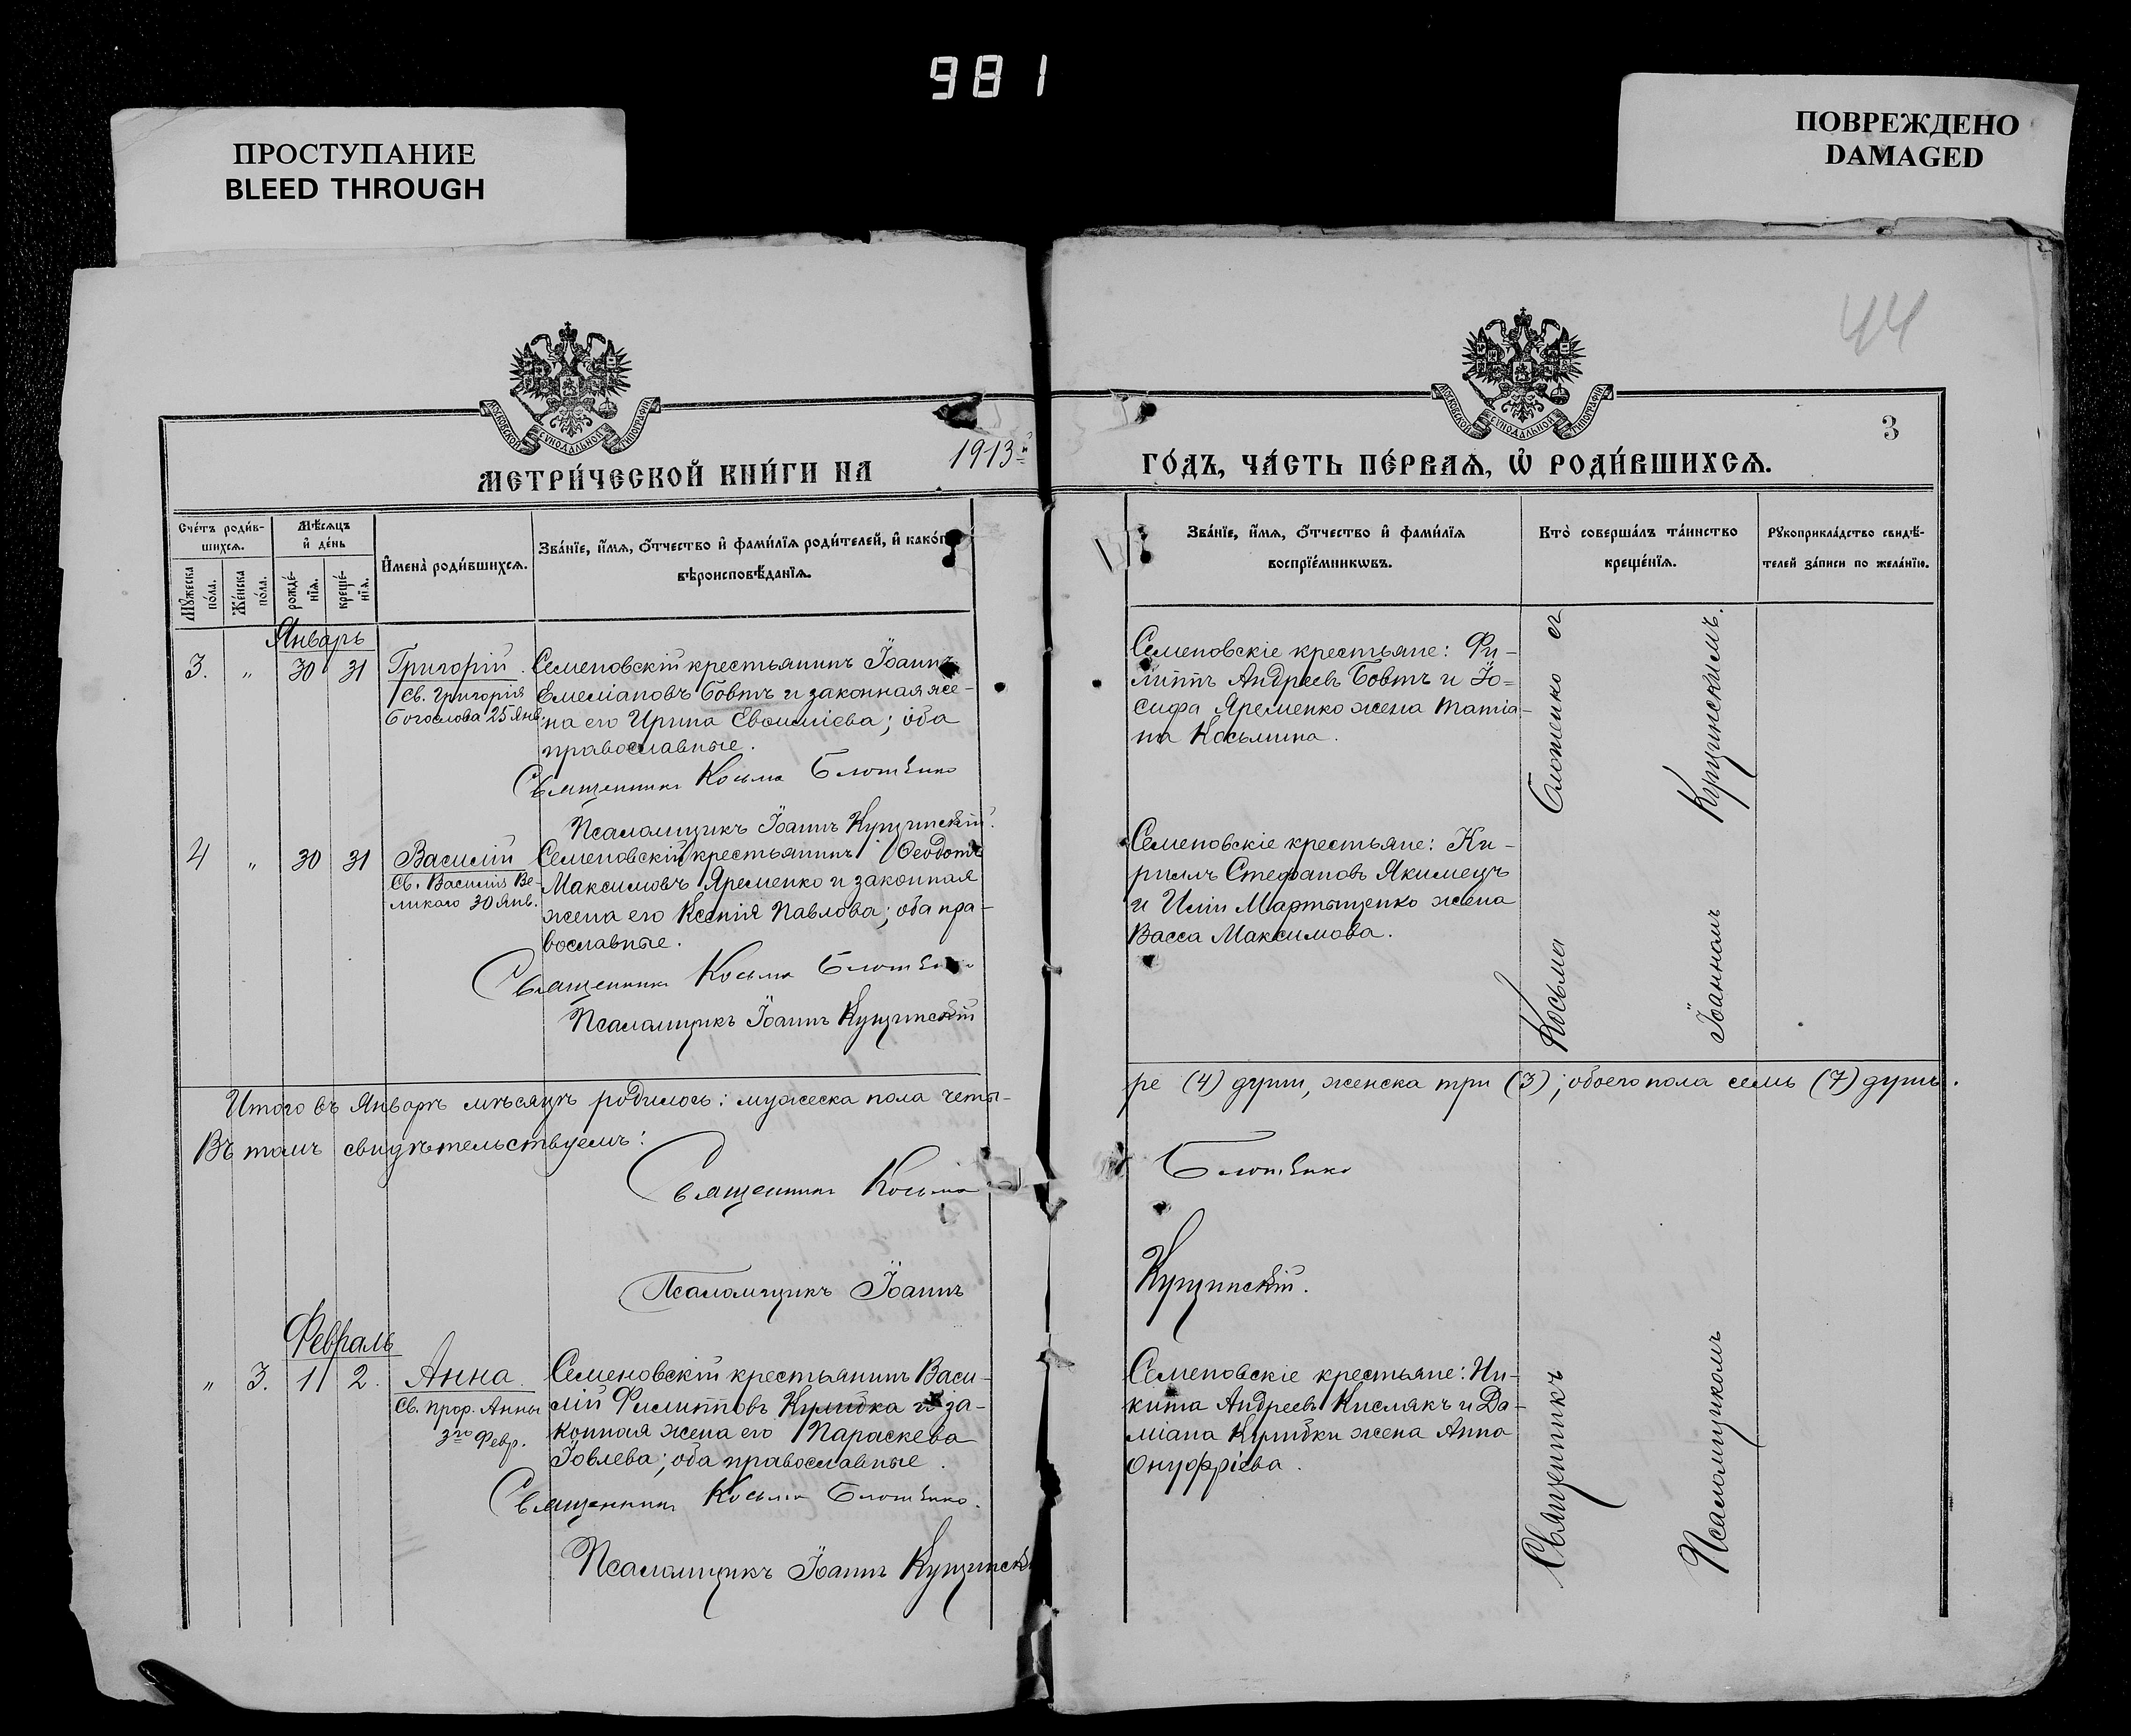 981
ПРОСТУПАНИЕ
BLEED THROUGH
ПОВРЕЖДЕНО
DAMAGED
44
3
МОСКОВСКОЙ СѴНОДАЛЬНОЙ ТИПОГРАФІИ
МОСКОВСКОЙ СѴНОДАЛЬНОЙ ТИПОГРАФІИ
МЕТРИ́ЧЕСКОЙ КНИ́ГИ НА 1913й ГО́ДЪ, ЧА́СТЬ ПЕ́РВАѦ, Ѡ҆ РОДИ́ВШИХСѦ.
Сче́тъ роди́в-
шихсѧ.
Мѣ́сѧцъ
и҆ де́нь
Мꙋ́жеска
по́ла.
Же́нска
по́ла.
рожде́-
нїѧ.
креще́-
нїѧ.
И҆мена̀ роди́вшихсѧ.
Зва́нїе, и҆́мѧ, ѻ҆́тчество и҆ фами́лїѧ роди́телей, и҆ како́гѡ
вѣроисповѣ́данїѧ.
Зва́нїе, и҆́мѧ, ѻ҆́тчество и҆ фами́лїѧ
воспрїе́мникѡвъ.
Кто̀ соверша́лъ та́инство
креще́нїѧ.
Рꙋкоприкла́дство свидѣ́-
телей за́писи по жела́нїю.
Январь
3. " 30 31
Григорій
св. Григорія
Богослова 25 Янв.
Семеновскій крестьянинъ Іоаннъ
Емеліановъ Бовтъ и законная же-
на его Ирина Евѳиміева; оба
православные.
Священникъ Косьма Блотенко
Псаломщикъ Іоаннъ Кущинскій.
Семеновскіе крестьяне: Фи-
липпъ Андреевъ Бовтъ и Іо-
сифа Яременко жена Татіа-
на Косьмина.
4 " 30 31
Василій
Св. Василія Ве-
ликаго 30 Янв.
Семеновскій крестьянинъ Ѳеодотъ
Максимовъ Яременко и законная
жена его Ксенія Павлова; оба пра-
вославные.
Священникъ Косьма Блотенко
Псаломщикъ Іоаннъ Кущинскій
Семеновскіе крестьяне: Ки-
риллъ Стефановъ Якимецъ
и Иліи Мартыщенко жена
Васса Максимова.
Итого въ Январѣ мѣсяцѣ родилось: мужеска пола четы-
ре (4) души, женска три (3); обоего пола семь (7) душъ.
Въ томъ свидѣтельствуемъ:
Священникъ Косьма Блотенко
Псаломщикъ Іоаннъ Кущинскій.
Февраль
" 3. 1 2.
Анна.
Св. прор. Анны
3го Февр.
Семеновскій крестьянинъ Васи-
лій Филипповъ Кулидка и за-
конная жена его Параскева
Іовлева; оба православные.
Священникъ Косьма Блотенко.
Псаломщикъ Іоаннъ Кущинскі
Семеновскіе крестьяне: Ни-
кита Андреевъ Кислякъ и Да-
міана Кулидки жена Анна
Онуфріева.
Священникъ Косьма Блотенко съ
Псаломщикомъ Іоанномъ Кущинскимъ.